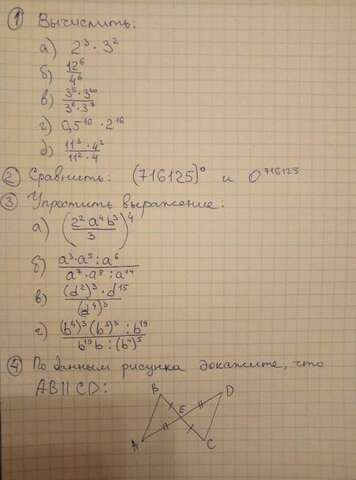 ① Вычислить:
а) 2³ · 3²
б) 12⁶/4⁶
в) (3⁵ · 3²⁰)/(3⁸ · 3⁷)
г) 0,5¹⁰ · 2¹⁶
д) (11³ · 4²)/(11² · 4)
② Сравнить: (716125)⁰ и 0⁷¹⁶¹²⁵
③ Упростить выражение:
а) (2²a⁴b³/3)⁴
б) (a³ · a⁵ : a⁶)/(a⁷ · a⁸ : a¹⁴)
в) ((d²)³ · d¹⁵)/(d⁴)³
г) ((b⁴)³(b³)³ : b¹⁹)/(b¹⁹b : (b⁴)⁵)
④ По данным рисунка докажите, что
AB||CD:
B D
E
A C